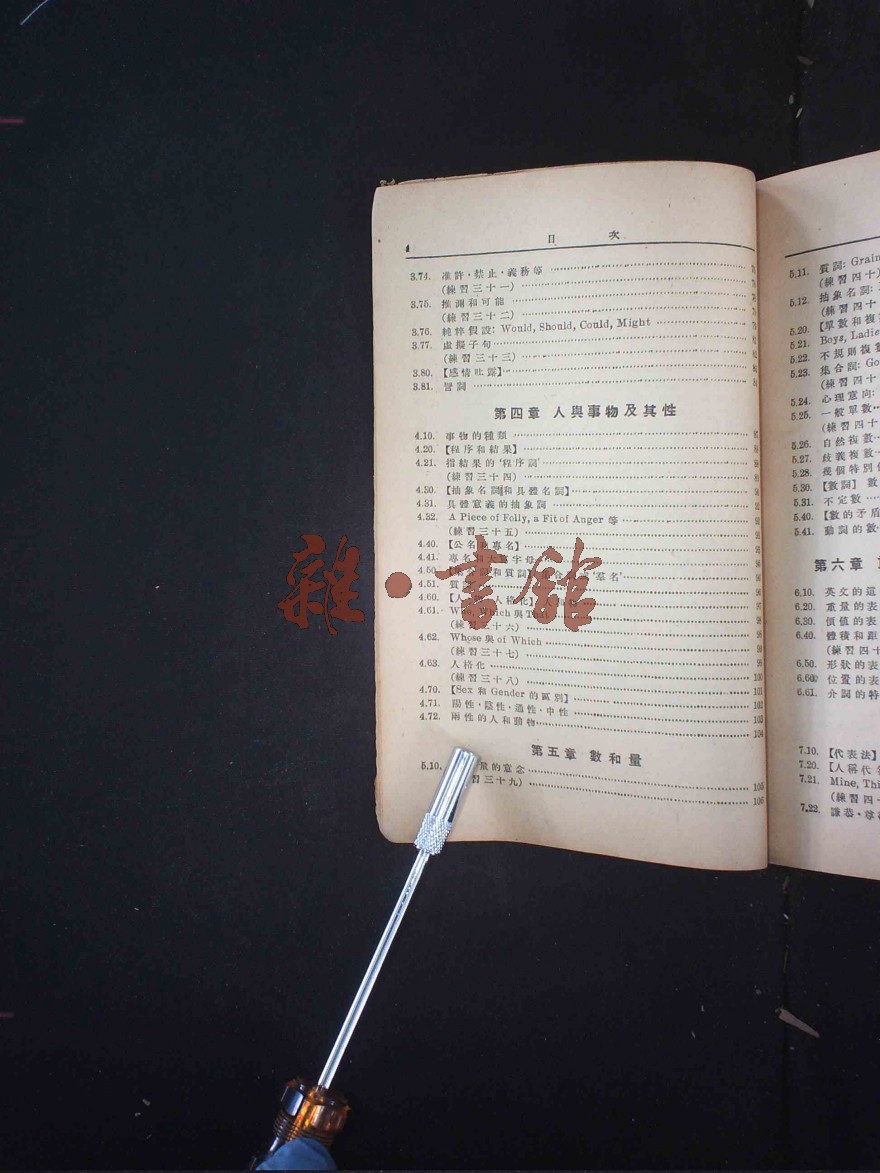 4
目 次
3.74. 准許·禁止·義務等
(練習三十一)
3.75. 推測和可能
(練習三十二)
3.76. 純粹假設: Would, Should, Could, Might
3.77. 虛擬子句
(練習三十三)
3.80. 【感情吐露】
3.81. 誓詞
第四章 人與事物及其性
4.10. 事物的種類
4.20. 【程序和結果】
4.21. 指結果的‘程序詞’
(練習三十四)
4.30. 【抽象名詞和具體名詞】
4.31. 具體意義的抽象詞
4.32. A Piece of Folly, a Fit of Anger 等
(練習三十五)
4.40. 【公名和專名】
4.41. 專名和大寫字母
4.50. 和質詞
4.51. 質
4.60. 【人 人格化】
4.61. Who, Which 與 That
(練習三十六)
4.62. Whose 與 of Which
(練習三十七)
4.63. 人格化
(練習三十八)
4.70. 【Sex 和 Gender 的區別】 101
4.71. 陽性·陰性·通性·中性 102
4.72. 兩性的人和動物 103
104
第五章 數和量
5.10. 量的意念 105
習三十九) 106
5.11. 質詞: Grain
(練習四十)
5.12. 抽象名詞:
(練習四十
5.20. 【單數和複
5.21. Boys, Ladie
5.22. 不規則複數
5.23. 集合詞: Go
(練習四十
5.24. 心理意向:
5.25. 一般單數
(練習四十
5.26. 自然複數
5.27. 歧義複數
5.28. 幾個特別
5.30. 【數詞】 數
5.31. 不定數
5.40. 【數的矛盾
5.41. 動詞的數
第六章
6.10. 英文的這
6.20. 重量的表
6.30. 價值的表
6.40. 體積和距
(練習四十
6.50. 形狀的表
6.60. 位置的表
6.61. 介詞的特
7.10. 【代表法】
7.20. 【人稱代名
7.21. Mine, Thi
(練習四十
7.22. 謙恭·尊
雜·書館